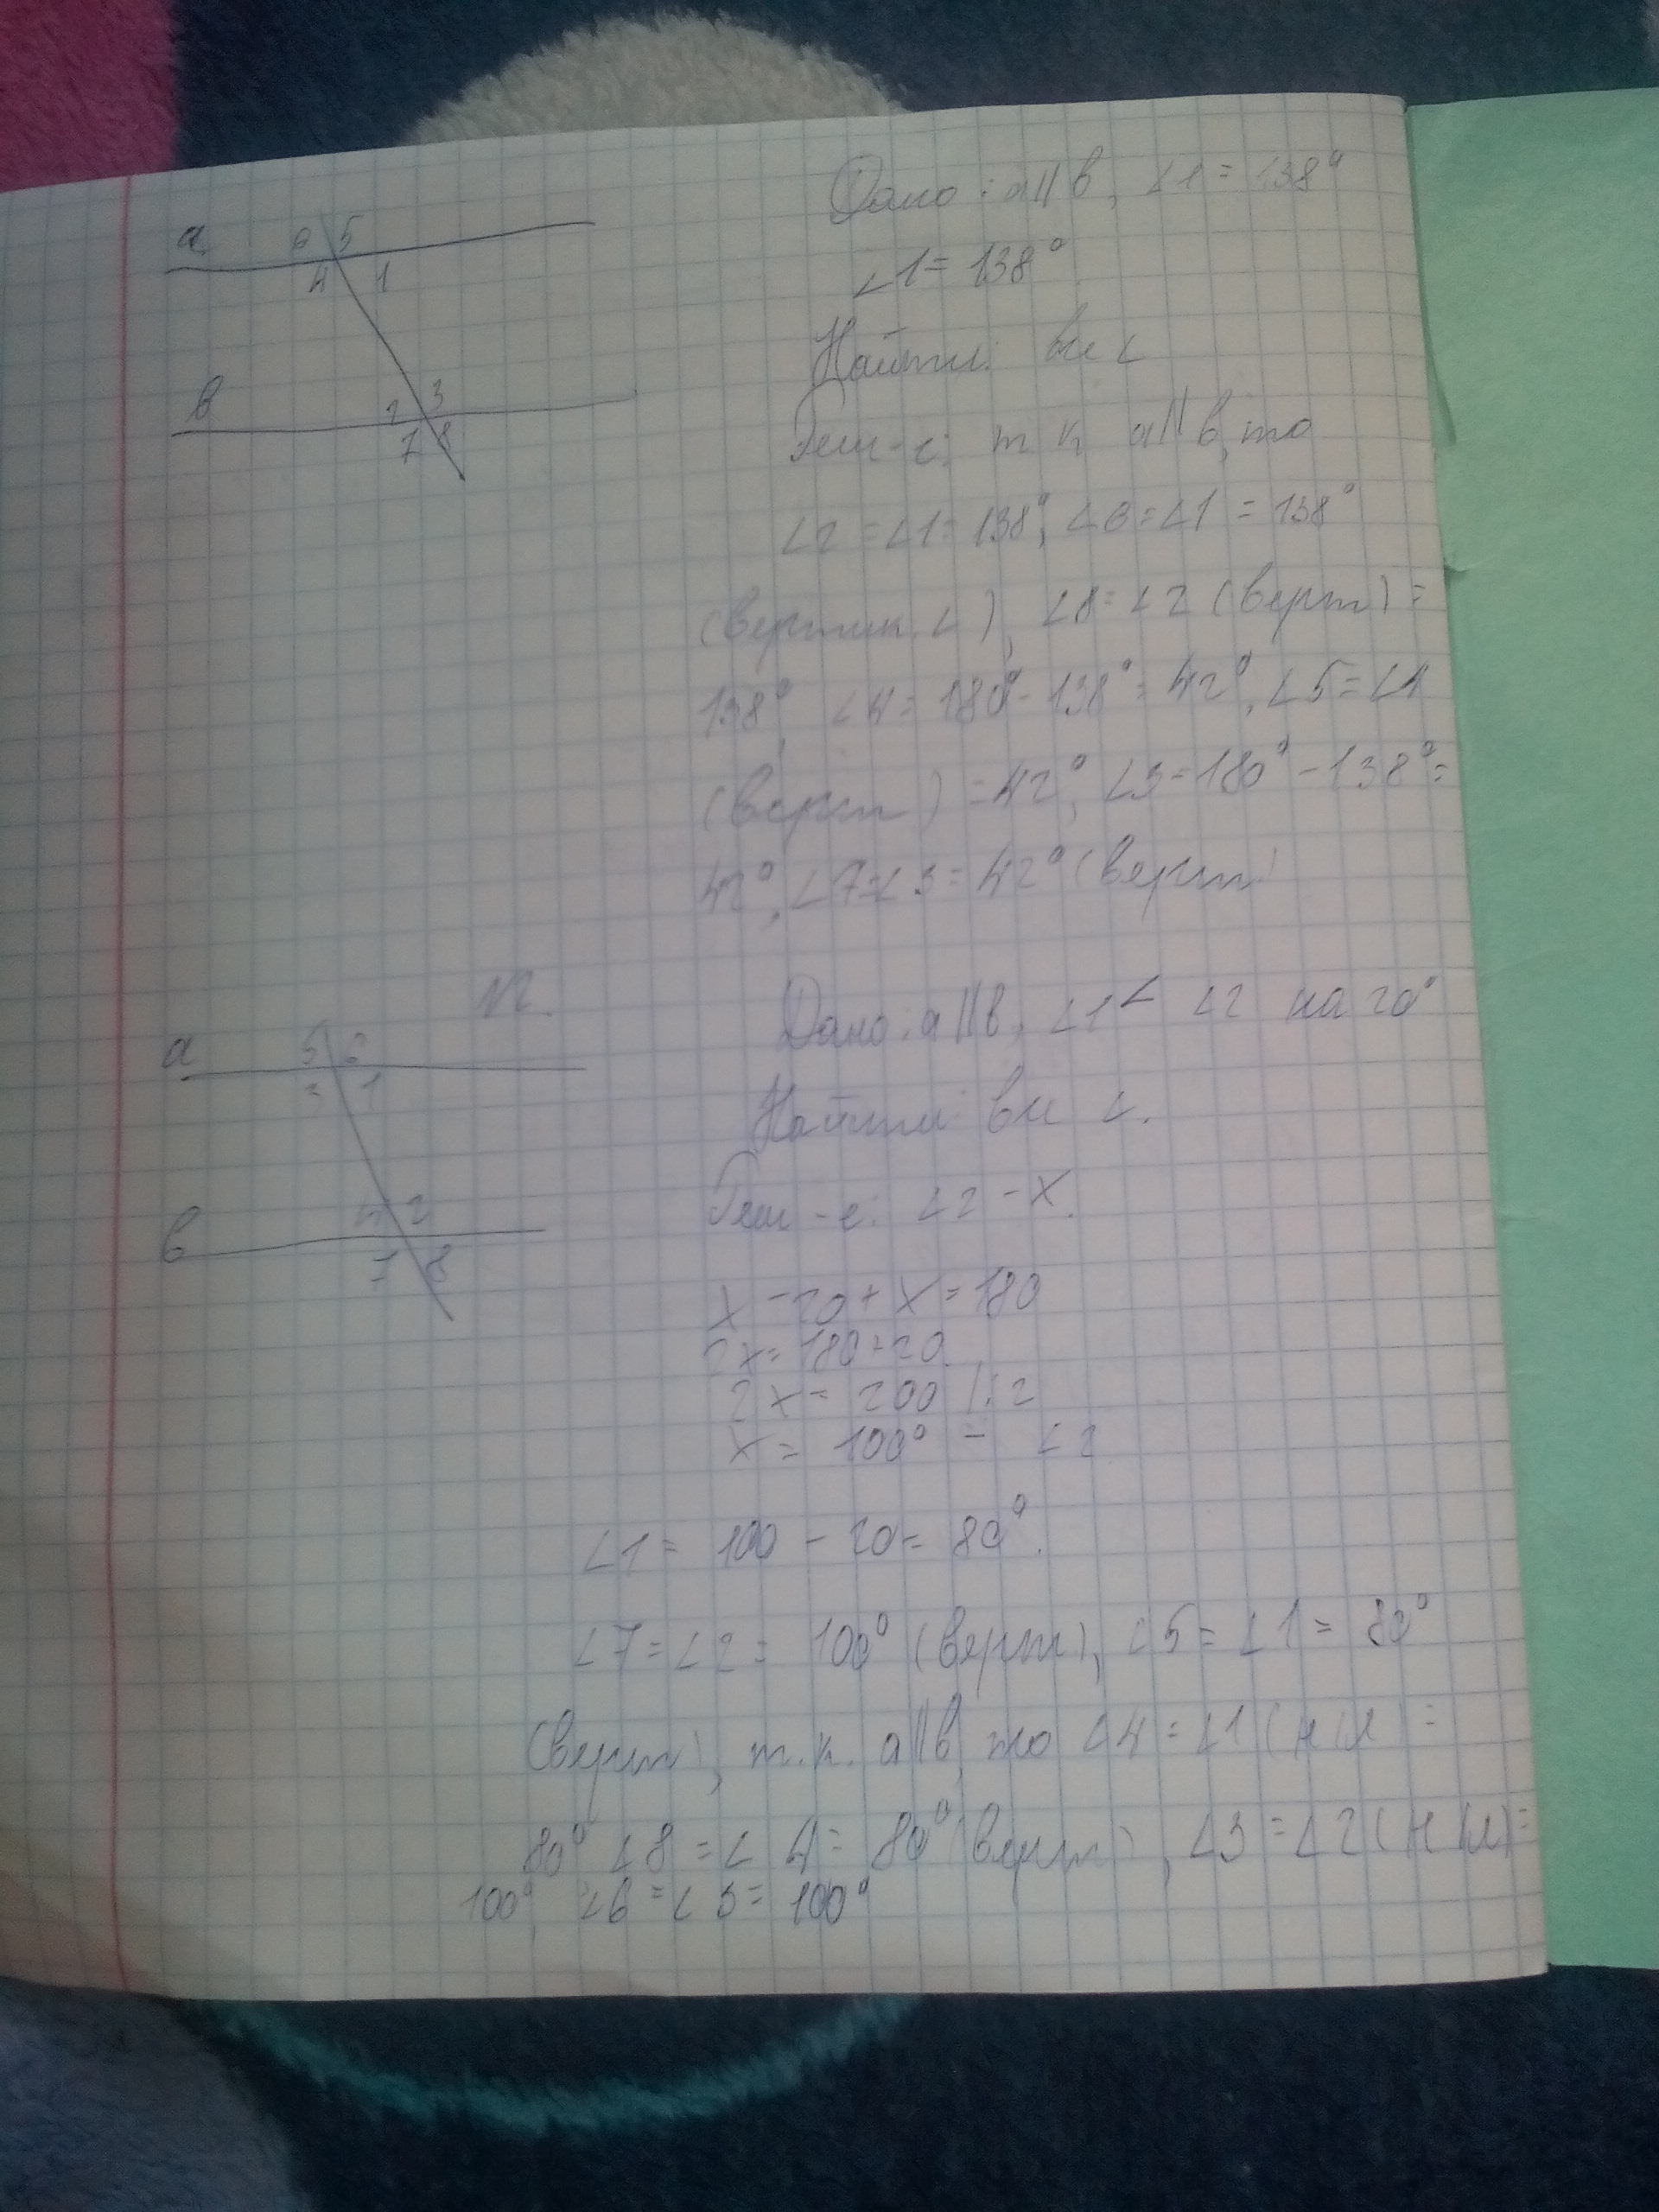 Дано: a || в, ∠1 = 138°
a 6 5
4 1
∠1 = 138°
Найти: все ∠
в 2 3
7 8
Реш-е: т.к a || в, то
∠2 = ∠1 = 138°, ∠6 = ∠1 = 138°
(вертик. ∠), ∠8 = ∠2 (верт) =
138°, ∠4 = 180° - 138° = 42°, ∠5 = ∠4
(верт) = 42°, ∠3 = 180° - 138° =
42°, ∠7 = ∠3 = 42° (верт)
N2.
Дано: a || в, ∠1 < ∠2 на 20°
a 5 6
3 1
Найти все ∠.
Реш-е: ∠2 - x.
в 4 2
7 8
x - 20 + x = 180
2x = 180 + 20
2x = 200 | : 2
x = 100° - ∠2
∠1 = 100 - 20 = 80°.
∠7 = ∠2 = 100° (верт), ∠5 = ∠1 = 80°
(верт), т.к. a || в, то ∠4 = ∠1 (н/л) =
80° ∠8 = ∠4 = 80° (верт), ∠3 = ∠2 (н/л) =
100°, ∠6 = ∠3 = 100°